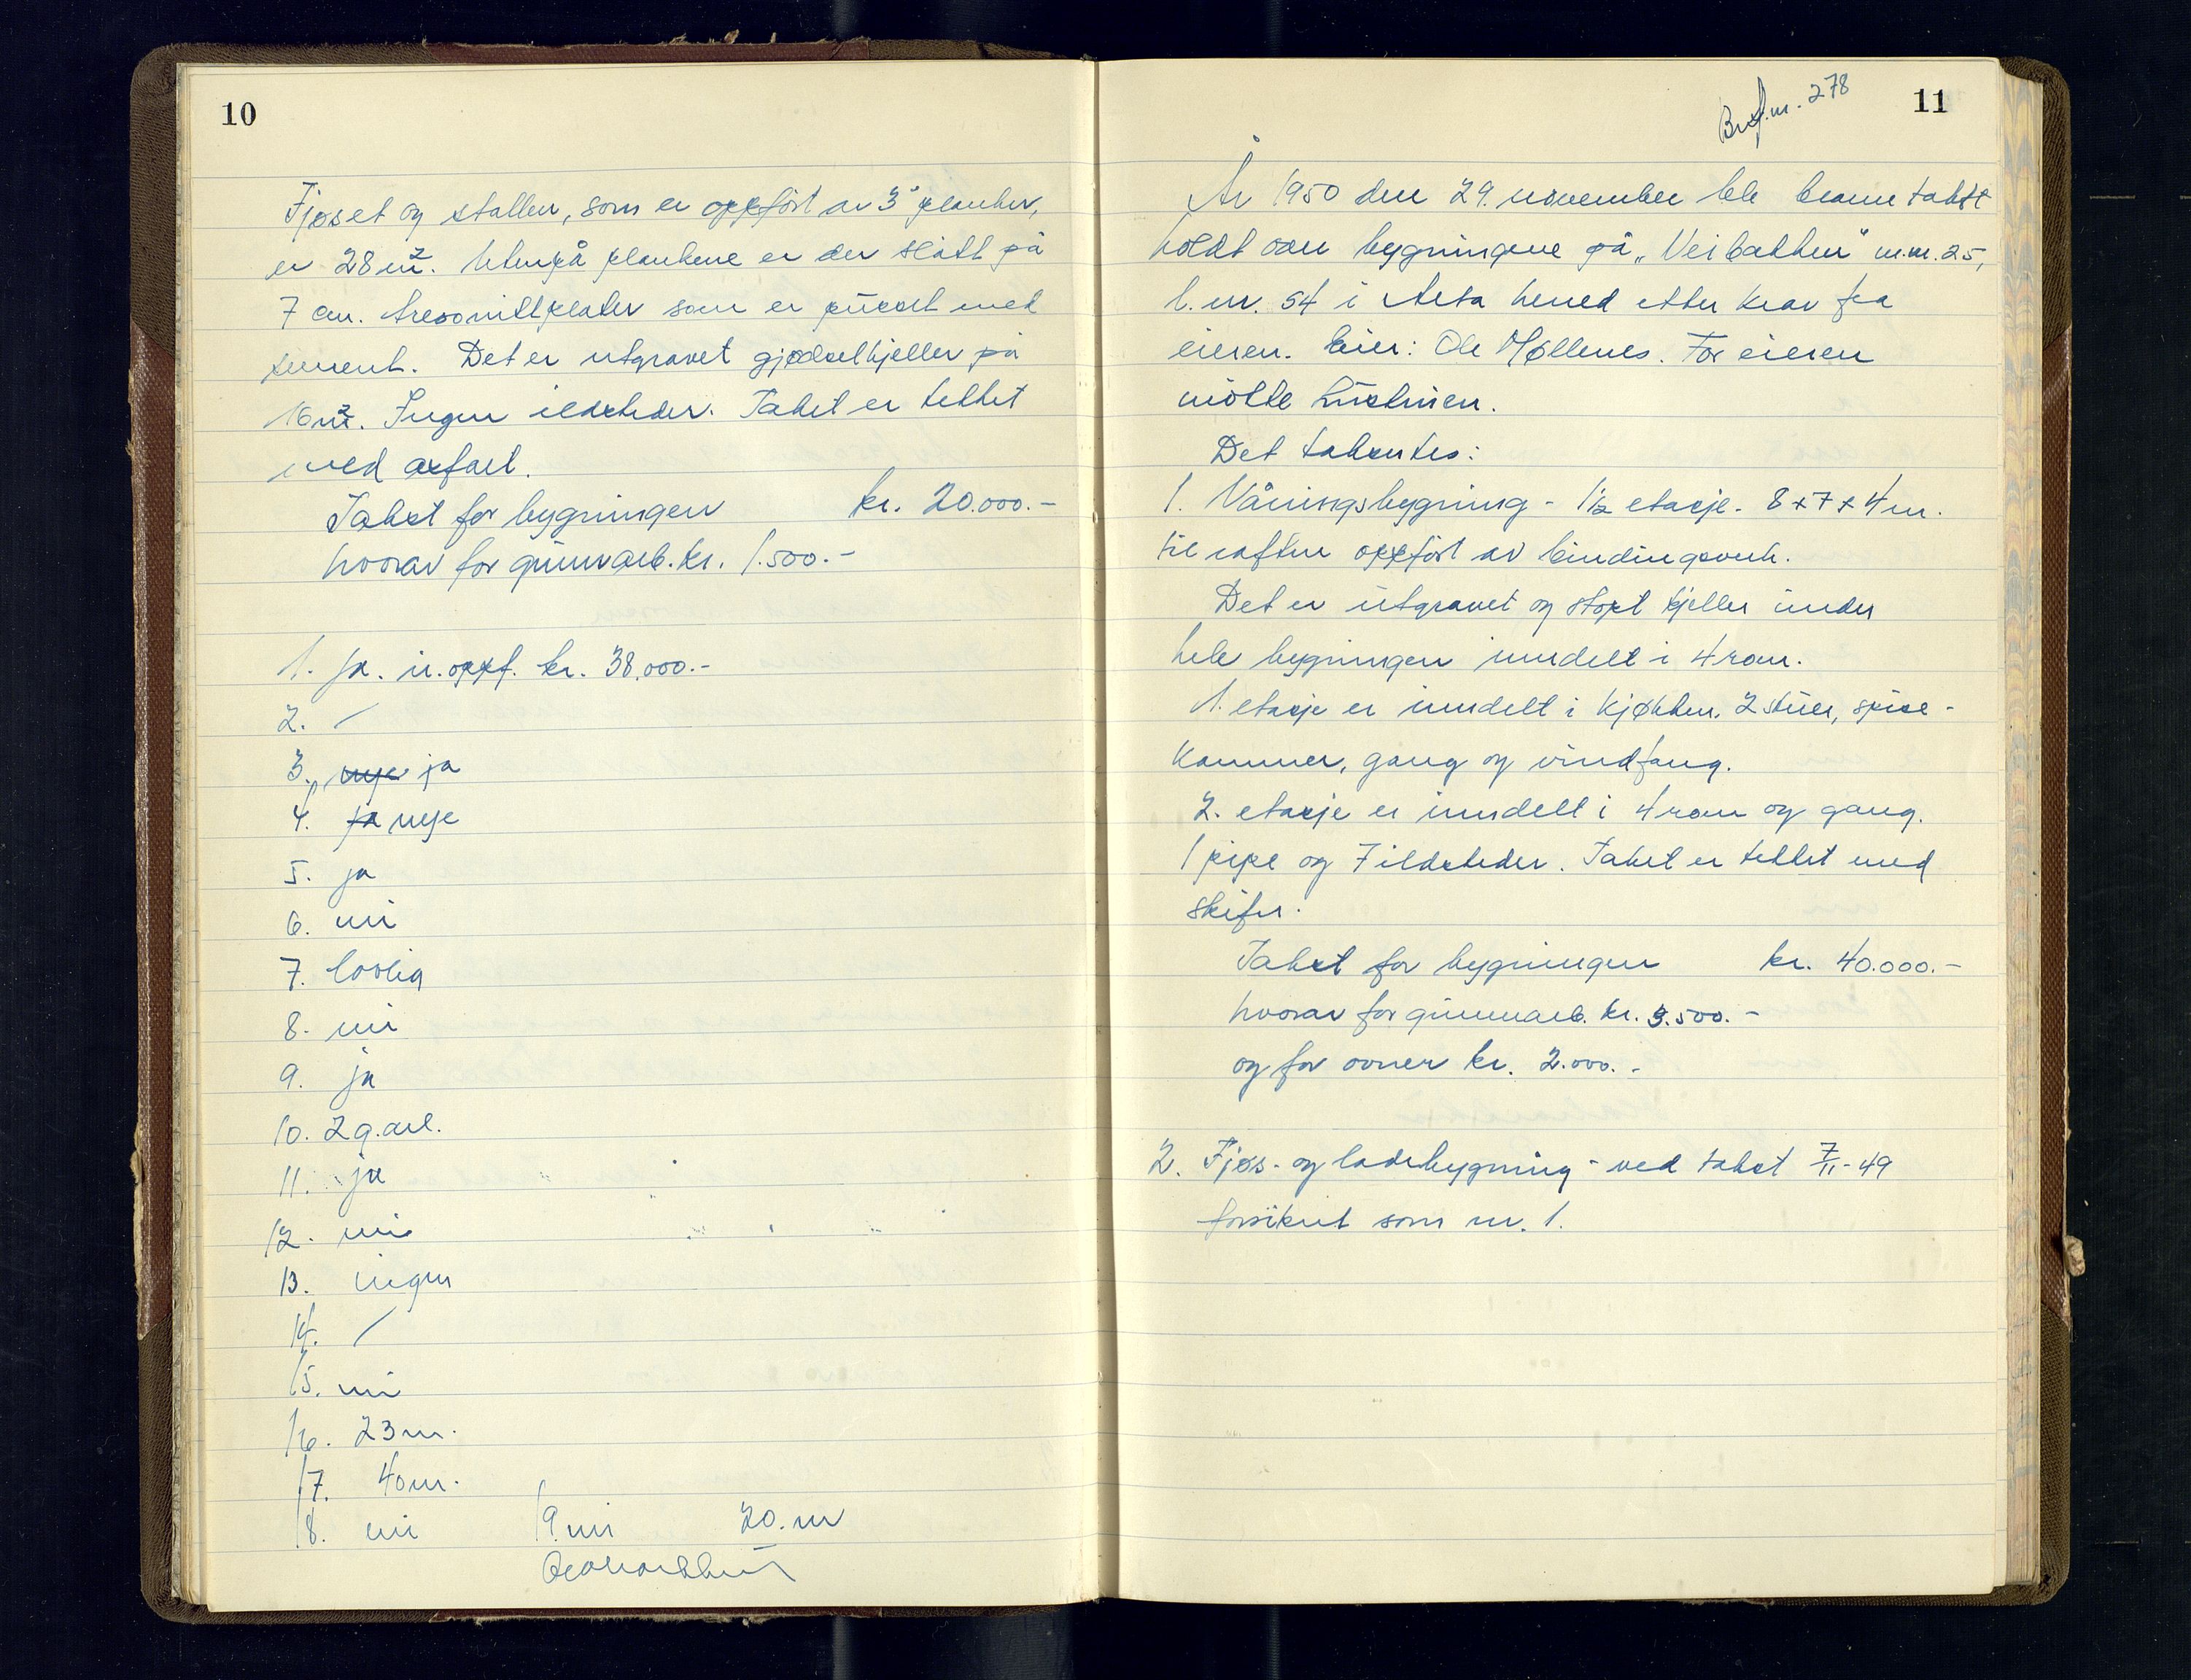 10
Fjøset og stallen, som er oppført av 3" planker,
er 28 m². Utenpå plankene er der slått på
7 cm. tresonittplater som er pusset med
sement. Det er utgravet gjødselkjeller på
16 m². Ingen ildsteder. Taket er tekket
med asfalt.
Takst for bygningen kr. 20.000.-
hvorav for grunnarb. kr. 1.500.-
1. ja. u. oppf. kr. 38.000.-
2. /
3. mye ja
4. ja mye
5. ja
6. nei
7. lovlig
8. nei
9. ja
10. 2 g. årl.
11. ja
12. nei
13. ingen
14. /
15. nei
16. 23 m.
17. 40 m.
18. nei 19. nei 20. nei
11
Br.f.nr. 278
År 1950 den 29. november ble branntakst
holdt over bygningene på "Veibakken" m.nr. 25,
l. nr. 54 i herred etter krav fra
eieren. Eier: Ole Møllenes. For eieren
møtte hustruen.
Det takseres:
1. Våningsbygning - 1½ etasje - 8 x 7 x 4 m.
til raften oppført av bindingsverk.
Det er utgravet og støpt kjeller under
hele bygningen inndelt i 4 rom.
1. etasje er inndelt i kjøkken, 2 stuer, spise-
kammer, gang og vindfang.
2. etasje er inndelt i 4 rom og gang.
1 pipe og 7 ildsteder. Taket er tekket med
skifer.
Takst for bygningen kr. 40.000.-
hvorav for grunnarb. kr. 3.500.-
og for ovner kr. 2.000.-
2. Fjøs- og ladebygning - ved takst 7/11-49
forsikret som nr. 1.